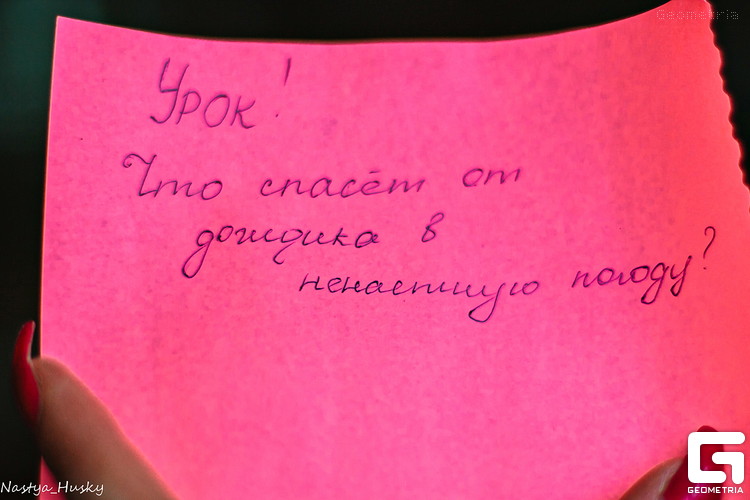 Geometria
Урок!
Что спасёт от
дождика в
ненастную погоду?
Nastya_Husky
GEOMETRIA